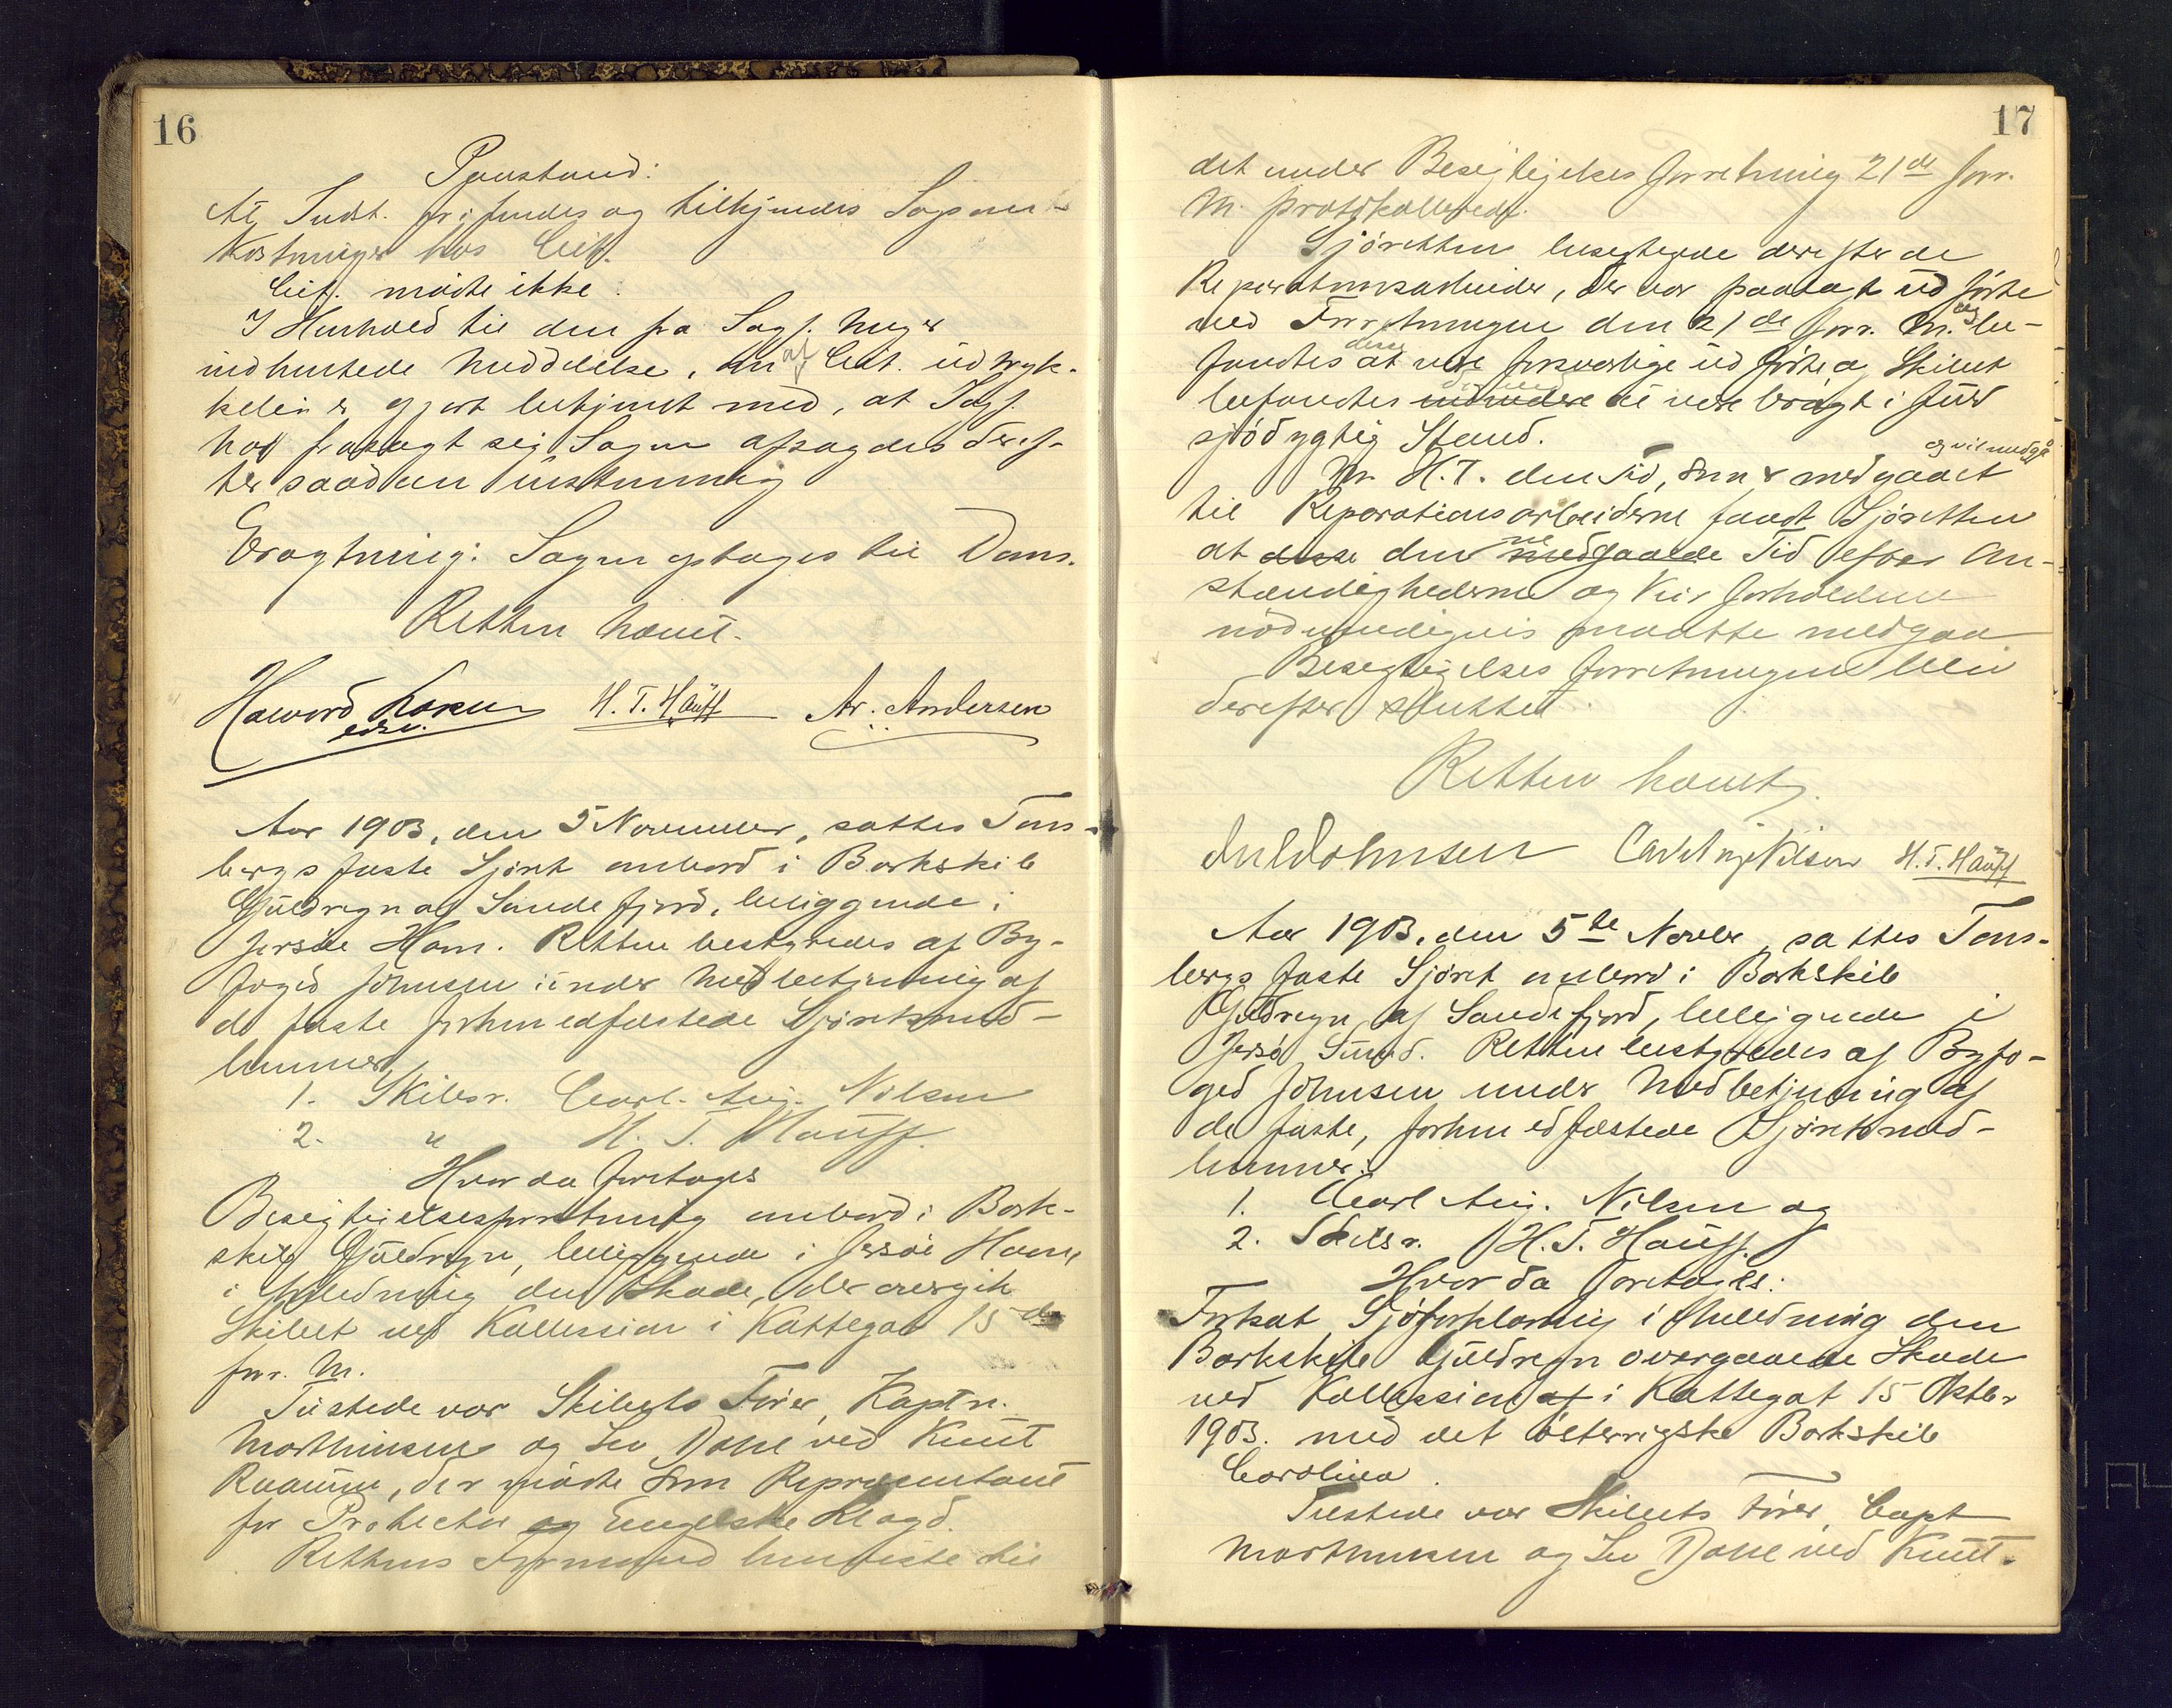 16
Paastand:
At Indst. frifindes og tilkjendes Sagsom-
kostninger hos Cit.
Cit. mødte ikke.
I Henhold til den fra Sagf. Meyer
indhentede Meddelelse, om at Cit. udtryk-
kelig er gjort bekjendt med, at Sagf.
har frasagt sig Sagen afsagdes deref-
ter saadan
Eragtning: Sagen optages til Dom.
Retten hævet.
Havord Larsen H. T. Hauff Ar. Andersen
edsv.
Aar 1903, den 5 November, sattes Tøns-
bergs faste Sjøret ombord i Barkskib
Guldregn af Sandefjord, beliggende i
Jersøe Havn. Retten bestyredes af By-
foged Johnsen under Medbetjening af
de faste forhen edfæstede Sjøretsmed-
lemmer,
1. Skibsr. Carl Aug. Nilsen
2. " H. T. Hauff.
Hvorda foretoges
Besigtigelsesforretning ombord i Bark-
skib Guldregn, beliggende i Jersøe Havn,
i Anledning den Skade, der overgik
Skibet ved Kollission i Kattegat 15de
forr. M.
Tilstede var Skibets Fører, Kaptn.
Morthinsen og Lev Dahl ved Knut
Raaum, der mødte som Repræsentant
for Protector og Engelske Klagd.
Rettens Formand henviste til
17
det under Besigtigelses forretning 21de forr.
M. protokollerede.
Sjøretten besigtigede derefter de
Reparationsarbeider, der var paalagt udførte
ved Forretningen den 21de forr. M. og be-
fandtes disse at være forsvarlige udførte og Skibet
befandtes at være bragt i fuld
sjødygtig Stand.
og vil medgå
M. H. T. den Tid, som er medgaaet
til Reparationsarbeiderne fandt Sjøretten
at disse den medgaaede Tid efter Om-
stændighederne og Veirforholdene
nødvendigvis maatte medgaa
Besigtigelses forretningen blev
derefter sluttet.
Retten hævet.
Johnsen Carl Aug Nilsen H. T. Hauff
Aar 1903, den 5te Novbr, sattes Tøns-
bergs faste Sjøret ombord i Barkskib
Guldregn af Sandefjord, beliggende i
Jersø Sund. Retten bestyredes af Byfo-
ged Johnsen under Medbetjening af
de faste, forhen edfæstede Sjøretsmed-
lemmer:
1. Carl Aug. Nilsen og
2. Skibsr. H. T. Hauff.
Hvorda foretoges:
Fortsat Sjøforklaring i Anledning den
Barkskib Guldregn overgaaede Skade
ved Kollission af i Kattegat 15 Oktbr
1903. med det østerrigske Barkskib
Carolina.
Tilstede var Skibets Fører, Capt
Morthinsen og Lev Dahl ved Knut